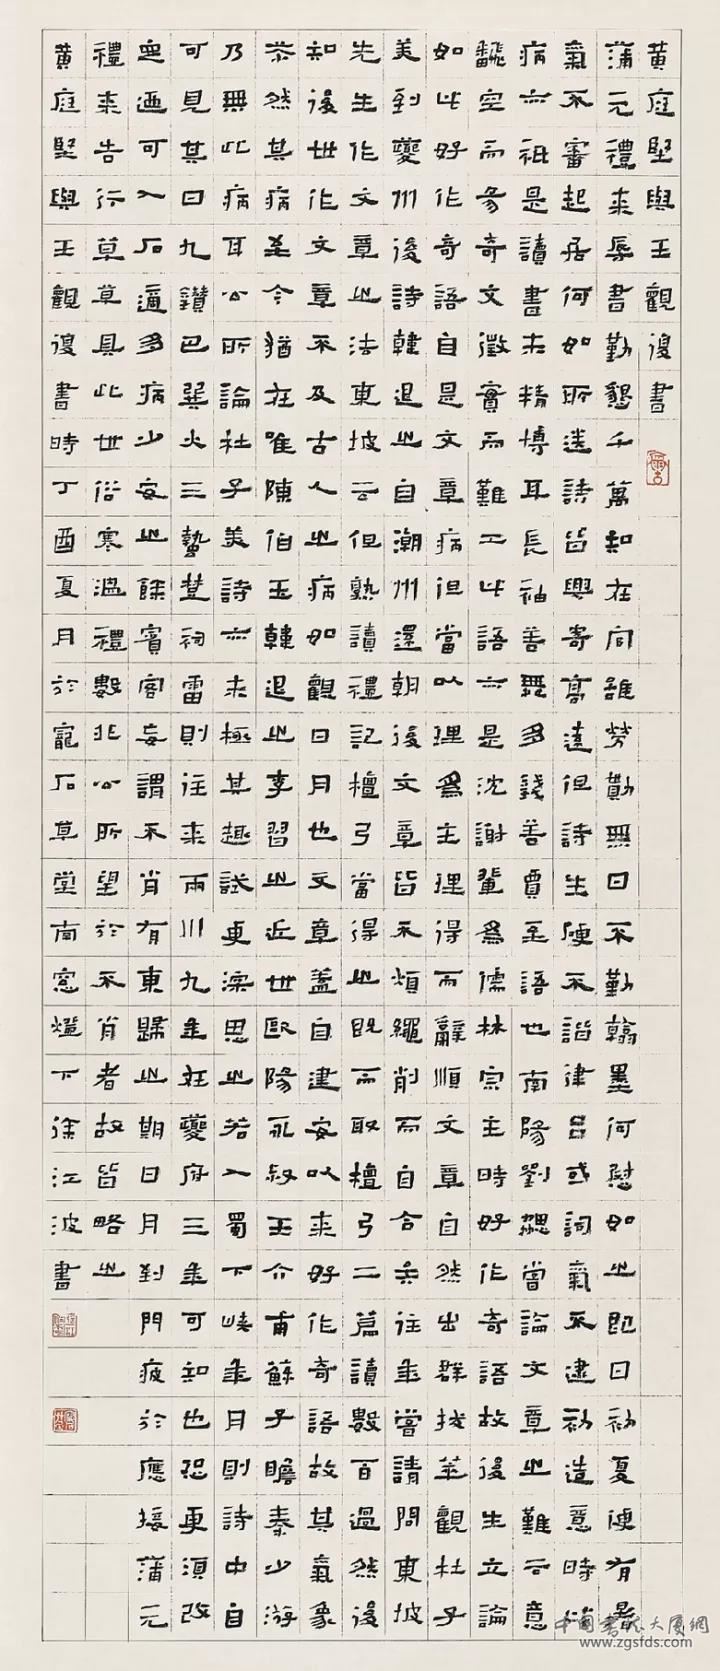 黄庭堅與王觀復書
蒲元禮來辱書勤懇千萬知在向雖勞勩無日不勤翰墨何慰如之即日初夏便有暑
氣不審起居何如所送詩皆興寄高遠但詩生硬不諧律呂或詞氣不逮初造意時此
病亦祗是讀書未精博耳長袖善舞多錢善賈至語也南陽劉勰嘗論文章之難云意
飜空而易奇文徵實而難工此語亦是沈謝輩為儒林宗主時好作奇語故後生立論
如此好作奇語自是文章病但當以理為主理得而辭順文章自然出群拔萃觀杜子
美到夔州後詩韓退之自潮州還朝後文章皆不煩繩削而自合矣往年嘗請問東坡
先生作文章之法東坡云但熟讀禮記檀弓當得之既而取檀弓二篇讀數百過然後
知後世作文章不及古人之病如觀日月也文章蓋自建安以來好作奇語故其氣象
苶然其病至今猶在唯陳伯玉韓退之李習之近世歐陽永叔王介甫蘇子瞻秦少游
乃無此病耳公所論杜子美詩亦未極其趣試更深思之若入蜀下峽年月則詩中自
可見其曰九鑽巴巽火三蟄楚祠雷則往來兩川九年在夔府三年可知也恐更須改
定迺可入石適多病少安之餘賓客妄謂不肖有東歸之期日月到門疲於應接蒲元
禮來告行草草具此世俗寒溫禮數非公所望於不肖者故皆略之
黄庭堅與王觀復書時丁酉夏月於寵石草堂南窗燈下徐江波書
中國書法大厦網
www.zgsfds.com